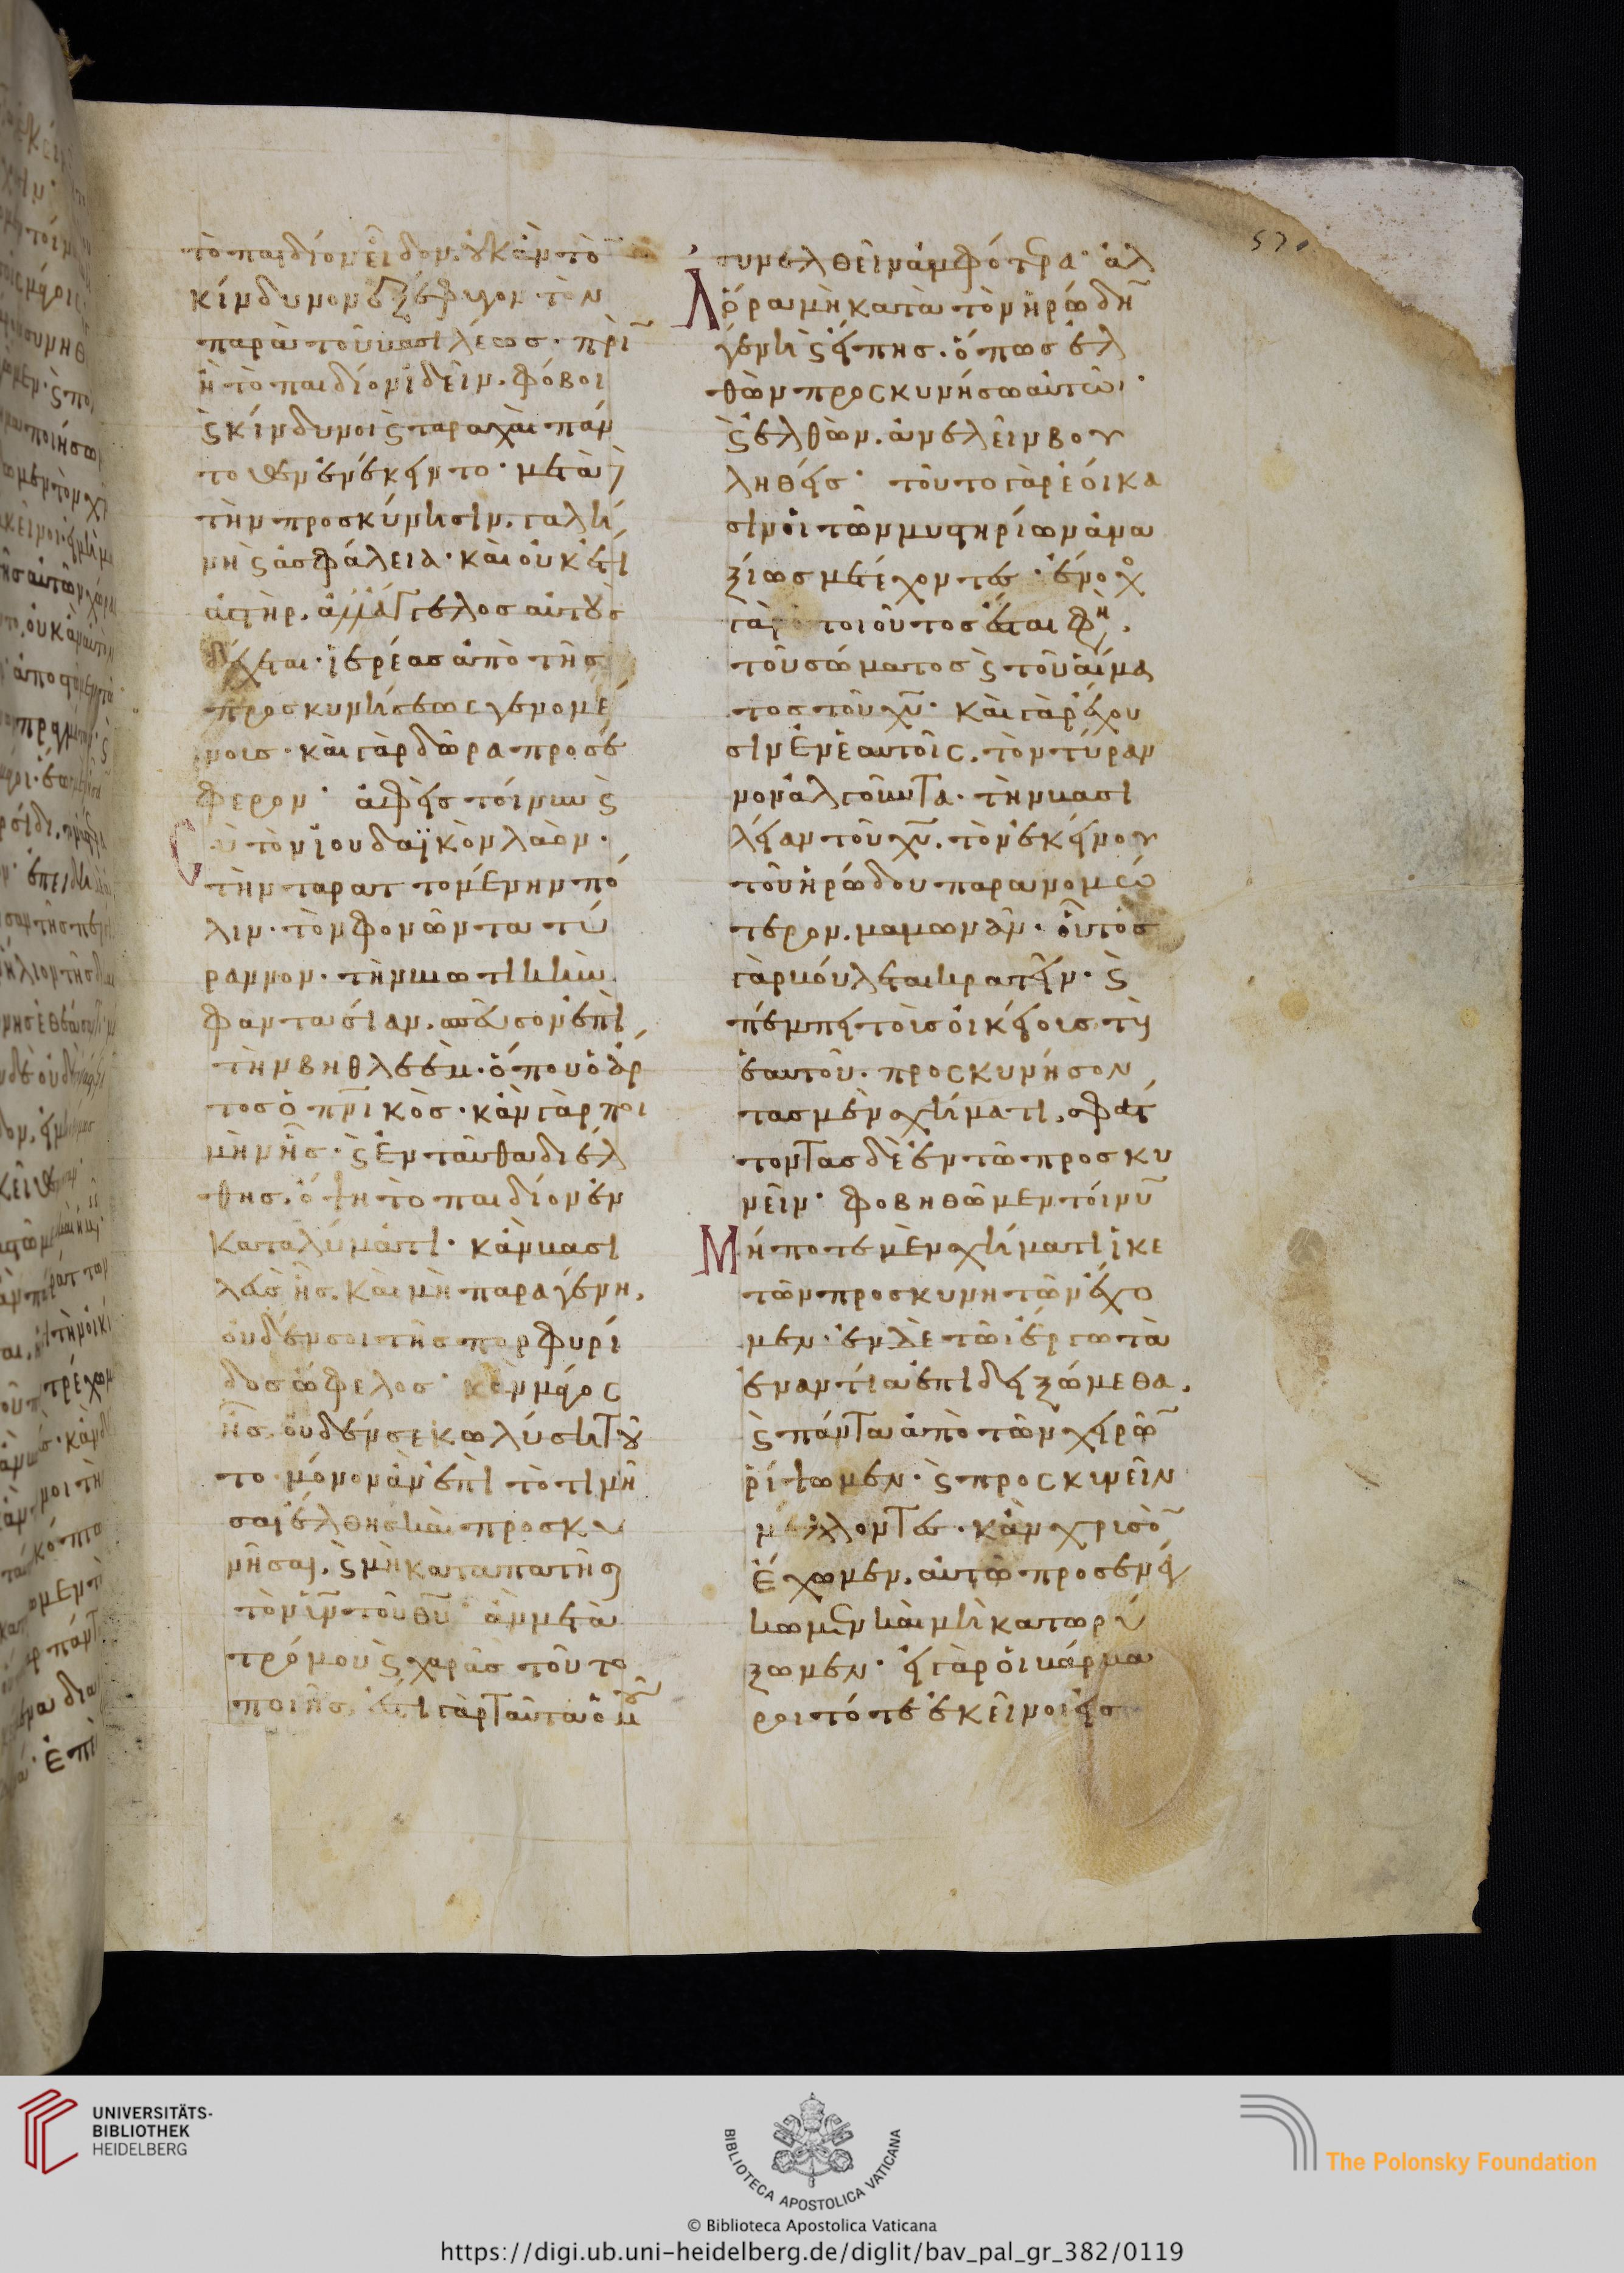 τὸ παιδίον εἶδον. οὐκ ἂν τὸν
κίνδυνον ἐξέφυγον τὸν
παρὰ τοῦ βασιλέως. πρὶν
ἢ τὸ παιδίον ἰδεῖν. φόβοι
ϛ κίνδυνοι ϛ ταραχαὶ πάν
τοθεν ἐνέκειντο. μετὰ δὲ
τὴν προσκύνησιν. γαλή
νη ϛ ἀσφάλεια. καὶ οὐκέτι
ἀστὴρ. ἀλλ' ἄγγελος αὐτοὺς
δέχεται. ἱερέας ἀπὸ τῆς
προσκυνήσεως γενομέ
νους. καὶ γὰρ δῶρα προσέ
φερον. ἀφεὶς τοίνυν ϛ
σὺ τὸν ἰουδαϊκὸν λαὸν.
τὴν ταραττομένην πό
λιν. τὸν φονῶντα τύ
ραννον. τὴν βιωτικὴν
φαντασίαν. σπεῦσον ἐπὶ
τὴν βηθλεὲμ. ὅπου ὁ ἄρ
τος ὁ πνικὸς. κἂν γὰρ ποι
μὴν ἦς. ϛ ἐνταῦθα διέλ
θης. ὄψη τὸ παιδίον ἐν
καταλύματι. κἂν βασι
λεὺς ἦς. καὶ μὴ παραγένη,
οὐδέν σοι τῆς πορφυρί
δος ὄφελος. κἂν μάγος
ἦς. οὐδέν σε κωλύσει τοῦ
το. μόνον ἂν ἐπὶ τὸ τιμῆ
σαι ἔλθης καὶ προσκυ
νῆσαι, ϛ μὴ καταπατῆσαι
τὸν υν τοῦ θυ. ἂν μετὰ
τρόμου ϛ χαρᾶς τοῦτο
ποιῆς. ἔστι γὰρ ταῦτα ὁμοῦ
συνελθεῖν ἀμφότερα. ἀλ
Λ' ὅρα μὴ κατὰ τὸν ἡρώδην
γένη ϛ εἴπης. ὅπως ἐλ
θὼν προσκυνήσω αὐτῶ.
ϛ ἐλθὼν. ἀνελεῖν βου
ληθεῖς. τούτο γὰρ ἐοίκα
σιν οἱ τῶν μυστηρίων ἀνα
ξίως μετέχοντες. ἔνοχος
γὰρ ὁ τοιοῦτος ἔσται φη,
τοῦ σώματος ϛ τοῦ αἵμα
τος τοῦ χυ. καὶ γὰρ ἔχου
σιν ἐν ἑαυτοῖς. τὸν τύραν
νον ἀλγοῦντα. τὴν βασι
λείαν τοῦ χυ. τὸν ἐκείνου
τοῦ ἡρώδου παρανομώ
τερον. μαμωνᾶν. οὗτος
γὰρ βούλεται κρατεῖν. ϛ
πέμπει τοὺς οἰκείους τοὺς
ἑαυτοῦ. προσκυνήσον
τας μὲν σχήματι. σφάτ
τοντας δὲ ἐν τῶ προσκυ
νεῖν. φοβηθῶμεν τοίνυν
Μήποτε μὲν σχῆμα τι ἱκε
τῶν προσκυνητῶν ἔχω
μεν. ἐν δὲ τῶ ἔργω τὰ
ἐναντία ἐπιδειξώμεθα.
ϛ πάντα ἀπὸ τῶν χειρῶν
ῥίψωμεν. ϛ προσκυνεῖν
μέλλοντες. κἂν χρυσὸν
ἔχωμεν, αὐτῶ προσενέγ
κωμεν καὶ μὴ κατορύ
ξωμεν. εἰ γὰρ οἱ βάρβα
ροι τότε ἐκεῖνοι εἰς
570
UNIVERSITÄTS-
BIBLIOTHEK
HEIDELBERG
BIBLIOTECA APOSTOLICA VATICANA
The Polonsky Foundation
© Biblioteca Apostolica Vaticana
https://digi.ub.uni-heidelberg.de/diglit/bav_pal_gr_382/0119